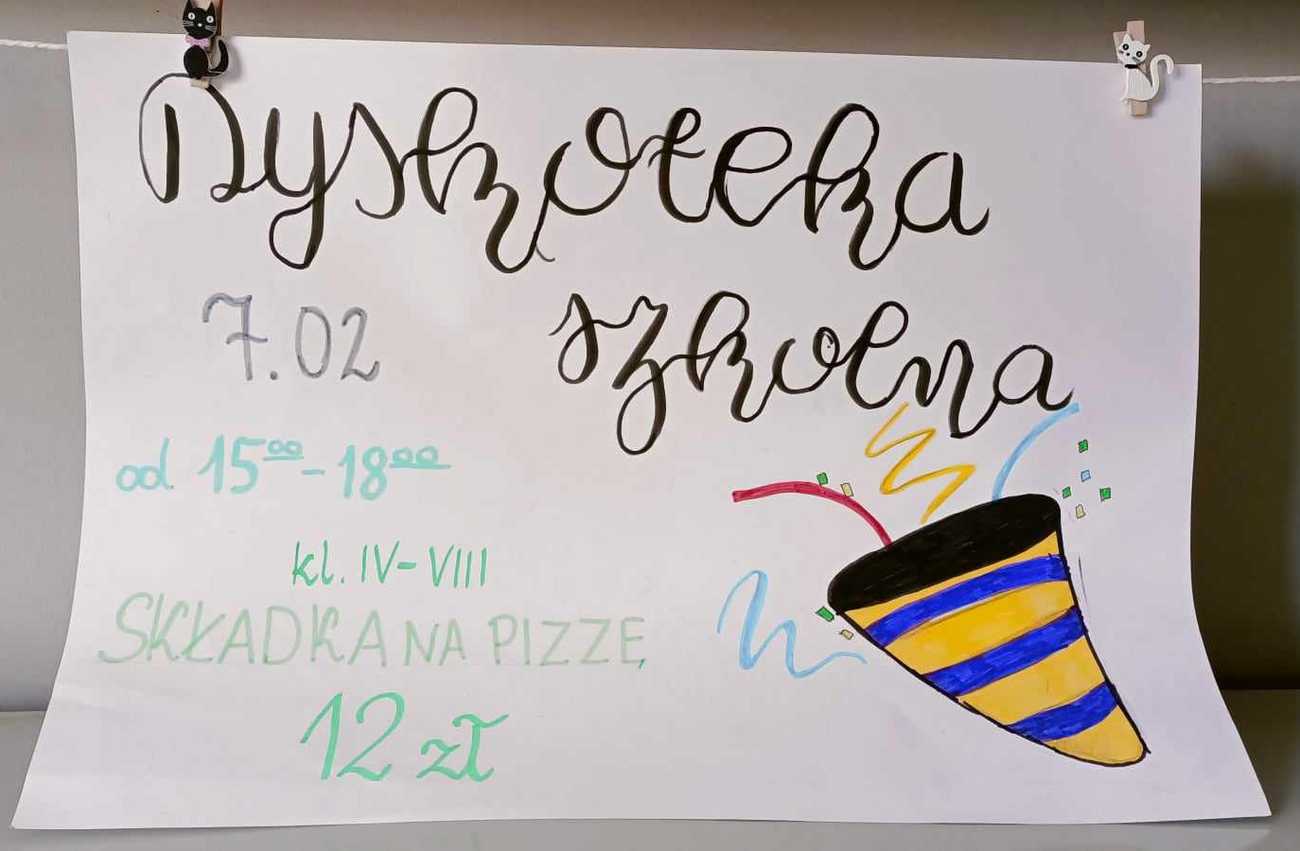 Dyskoteka
szkolna
7.02
od 15⁰⁰-18⁰⁰
kl. IV-VIII
SKŁADKA NA PIZZĘ
12 zł